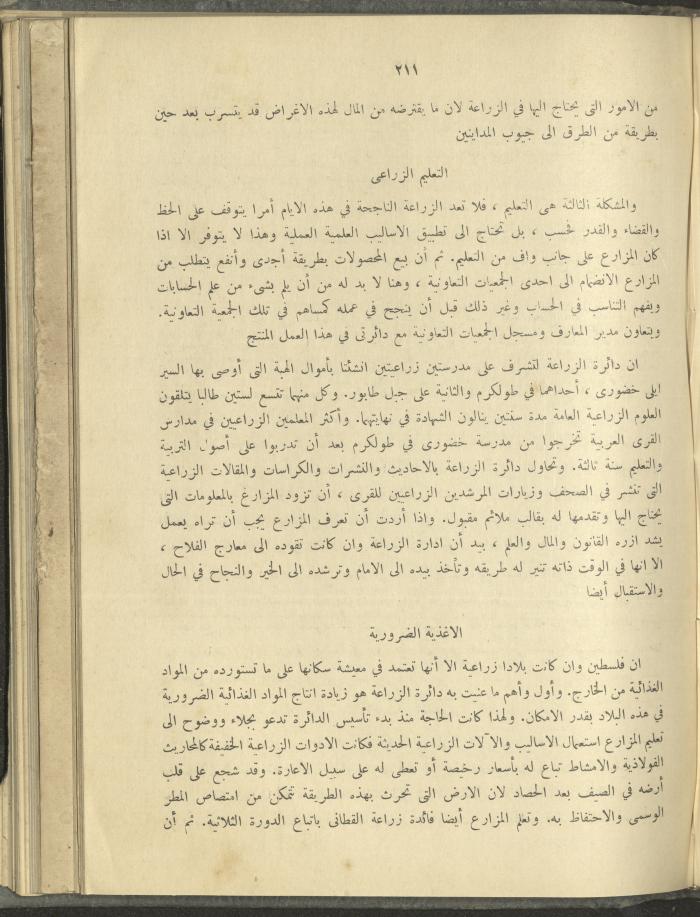 ٢١١
من الامور التى يحتاج اليها في الزراعة لان ما يقترضه من المال لهذه الاغراض قد يتسرب بعد حين
بطريقة من الطرق الى جيوب المداينين
التعليم الزراعى
والمشكلة الثالثة هى التعليم ، فلا تعد الزراعة الناجحة في هذه الايام أمرا يتوقف على الحظ
والقضاء والقدر فحسب ، بل تحتاج الى تطبيق الاساليب العلمية العملية وهذا لا يتوفر الا اذا
كان المزارع على جانب واف من التعليم. ثم أن بيع المحصولات بطريقة أجدى وأنفع يتطلب من
المزارع الانضمام الى احدى الجمعيات التعاونية ، وهنا لا بد له من أن يلم بشىء من علم الحسابات
ويفهم التناسب في الحساب وغير ذلك قبل أن ينجح في عمله كمساهم في تلك الجمعية التعاونية.
ويتعاون مدير المعارف ومسجل الجمعيات التعاونية مع دائرتى في هذا العمل المنتج
ان دائرة الزراعة لتشرف على مدرستين زراعيتين انشئنا بأموال الهبة التى أوصى بها السير
ايلى خضورى ، أحداهما في طولكرم والثانية على جبل طابور. وكل منهما تتسع لستين طالبا يتلقون
العلوم الزراعية العامة مدة سنتين ينالون الشهادة في نهايتهما. وأكثر المعلمين الزراعيين في مدارس
القرى العربية تخرجوا من مدرسة خضورى في طولكرم بعد أن تدربوا على أصول التربية
والتعليم سنة ثالثة. وتحاول دائرة الزراعة بالاحاديث والنشرات والكراسات والمقالات الزراعية
التى تنشر في الصحف وزيارات المرشدين الزراعيين للقرى ، أن تزود المزارع بالمعلومات التى
يحتاج اليها وتقدمها له بقالب ملائم مقبول. واذا أردت أن تعرف المزارع يجب أن تراه يعمل
يشد ازره القانون والمال والعلم ، بيد أن ادارة الزراعة وان كانت تقوده الى معارج الفلاح ،
الا انها في الوقت ذاته تنير له طريقه وتأخذ بيده الى الامام وترشده الى الخير والنجاح في الحال
والاستقبال أيضا
الاغذية الضرورية
ان فلسطين وان كانت بلادا زراعية الا أنها تعتمد في معيشة سكانها على ما تستورده من المواد
الغذائية من الخارج. وأول وأهم ما عنيت به دائرة الزراعة هو زيادة انتاج المواد الغذائية الضرورية
في هذه البلاد بقدر الامكان. ولهذا كانت الحاجة منذ بدء تأسيس الدائرة تدعو بجلاء ووضوح الى
تعليم المزارع استعمال الاساليب والآلات الزراعية الحديثة فكانت الادوات الزراعية الخفيفة كالمحاريث
الفولاذية والامشاط تباع له بأسعار رخيصة أو تعطى له على سبيل الاعارة. وقد شجع على قلب
أرضه في الصيف بعد الحصاد لان الارض التى تحرث بهذه الطريقة تتمكن من امتصاص المطر
الوسمى والاحتفاظ به. وتعلم المزارع أيضا فائدة زراعة القطانى باتباع الدورة الثلاثية. ثم أن